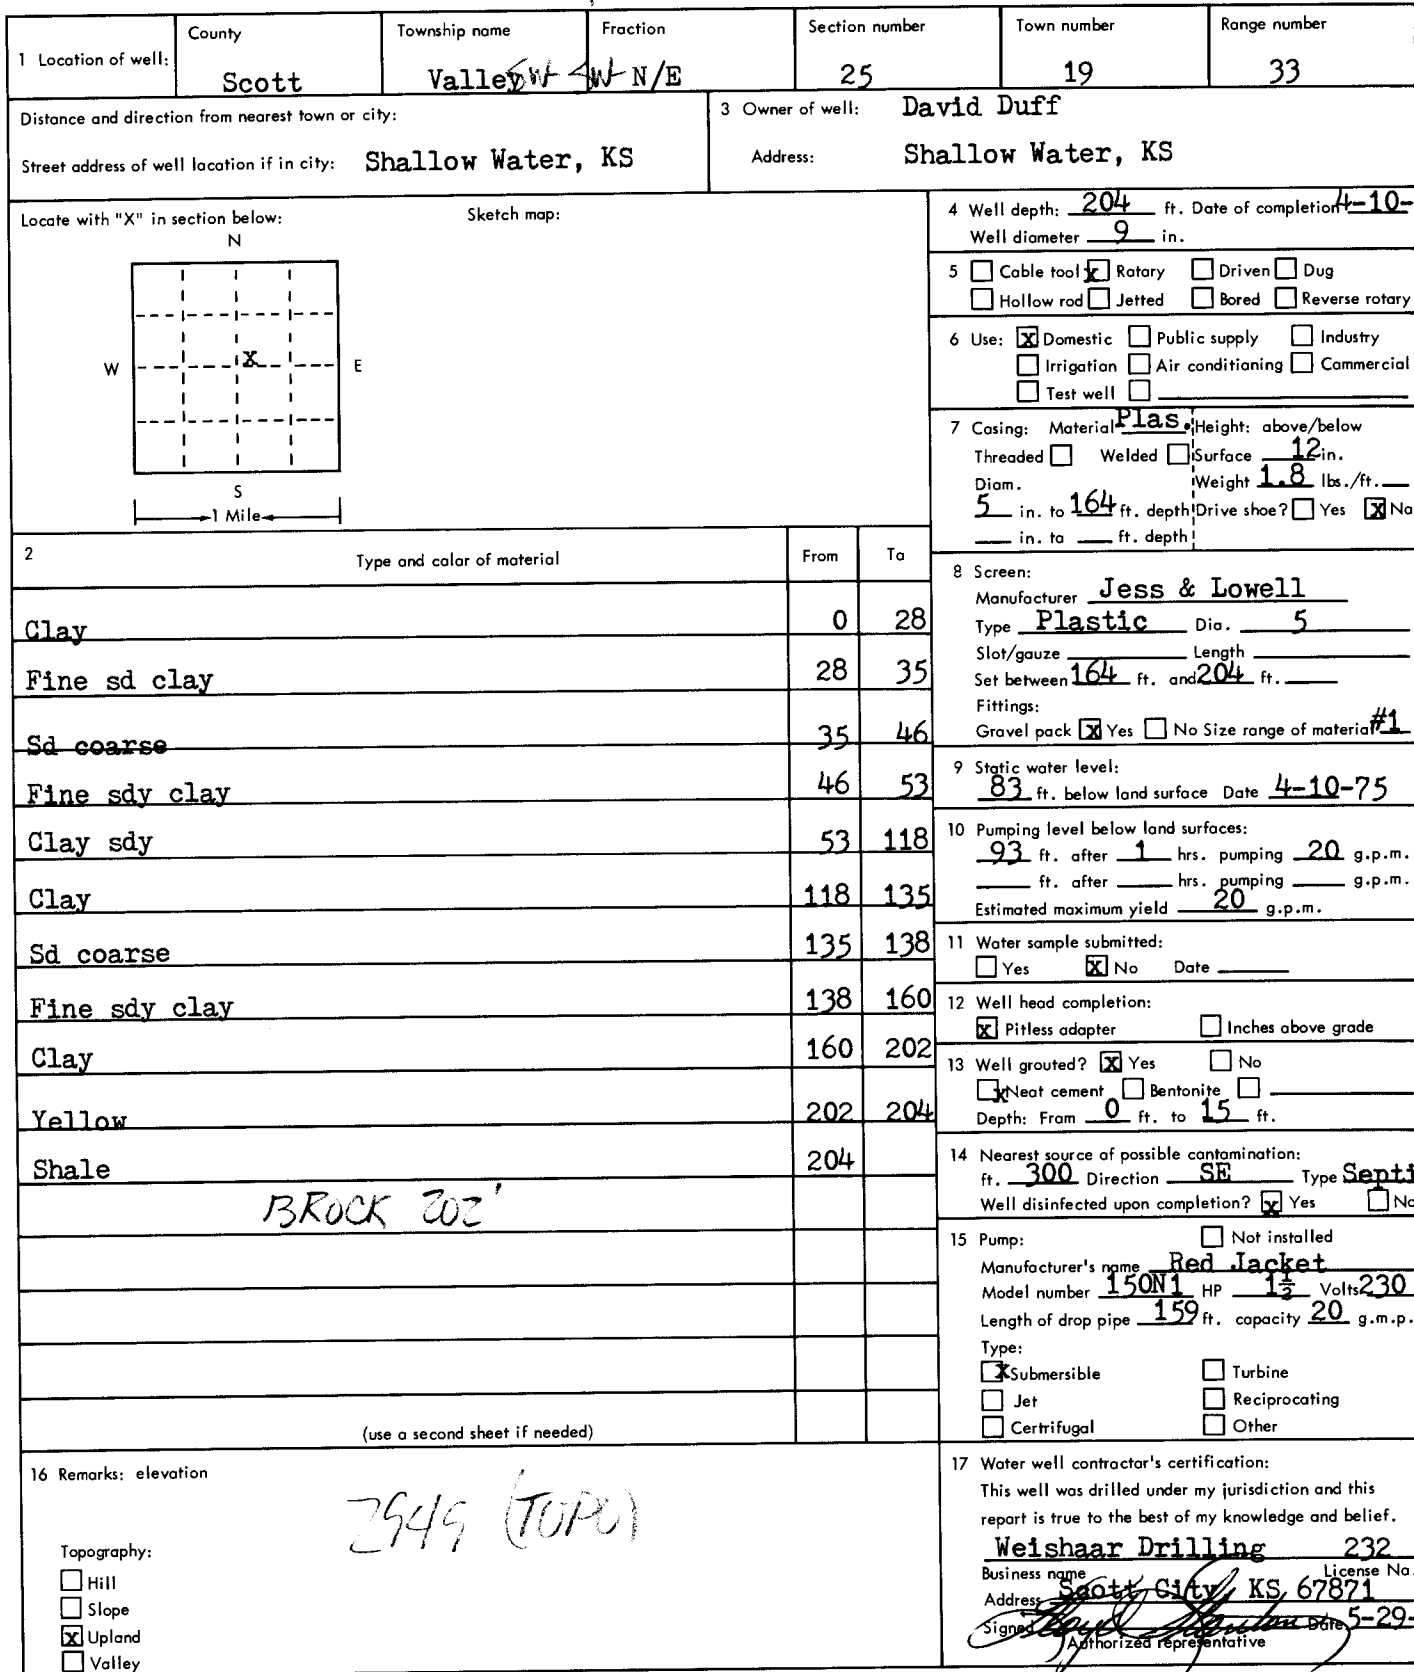 1 Location of well: County Township name Fraction Section number Town number Range number
Scott Valley SW SW N/E 25 19 33
Distance and direction from nearest town or city:
Street address of well location if in city: Shallow Water, KS
3 Owner of well: David Duff
Address: Shallow Water, KS
Locate with "X" in section below: Sketch map:
N
W X E
S
1 Mile
2 Type and color of material From To
Clay 0 28
Fine sd clay 28 35
Sd coarse 35 46
Fine sdy clay 46 53
Clay sdy 53 118
Clay 118 135
Sd coarse 135 138
Fine sdy clay 138 160
Clay 160 202
Yellow 202 204
Shale 204
BROCK 202'
(use a second sheet if needed)
4 Well depth: 204 ft. Date of completion 4-10-
Well diameter 9 in.
5 Cable tool X Rotary Driven Dug
Hollow rod Jetted Bored Reverse rotary
6 Use: X Domestic Public supply Industry
Irrigation Air conditioning Commercial
Test well
7 Casing: Material Plas. Height: above/below
Threaded Welded Surface 12 in.
Diam. Weight 1.8 lbs./ft.
5 in. to 164 ft. depth Drive shoe? Yes X No
in. to ft. depth
8 Screen:
Manufacturer Jess & Lowell
Type Plastic Dia. 5
Slot/gauze Length
Set between 164 ft. and 204 ft.
Fittings:
Gravel pack X Yes No Size range of material #1
9 Static water level:
83 ft. below land surface Date 4-10-75
10 Pumping level below land surfaces:
93 ft. after 1 hrs. pumping 20 g.p.m.
ft. after hrs. pumping g.p.m.
Estimated maximum yield 20 g.p.m.
11 Water sample submitted:
Yes X No Date
12 Well head completion:
X Pitless adapter Inches above grade
13 Well grouted? X Yes No
X Neat cement Bentonite
Depth: From 0 ft. to 15 ft.
14 Nearest source of possible contamination:
ft. 300 Direction SE Type Septi
Well disinfected upon completion? X Yes No
15 Pump: Not installed
Manufacturer's name Red Jacket
Model number 150N1 HP 1½ Volts 230
Length of drop pipe 159 ft. capacity 20 g.m.p.
Type:
X Submersible Turbine
Jet Reciprocating
Certrifugal Other
16 Remarks: elevation
2949 (TOPO)
Topography:
Hill
Slope
X Upland
Valley
17 Water well contractor's certification:
This well was drilled under my jurisdiction and this
report is true to the best of my knowledge and belief.
Weishaar Drilling 232
Business name License No.
Address Scott City, KS 67871
Signed Date 5-29-
Authorized representative